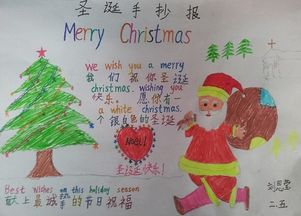 圣诞手抄报
Merry Christmas
We wish you a merry
我们祝你圣诞
christmas. wishing you
快乐，愿您有一
a white christmas.
个银白色的圣诞
Noel!
圣诞快乐!
Best wishes on this holiday season
献上最诚挚的节日祝福
二.五